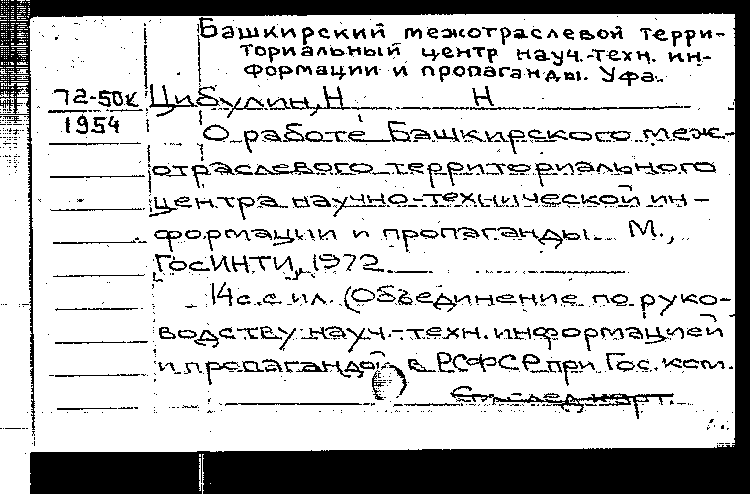 Башкирский межотраслевой терри-
ториальный центр науч.-техн. ин-
формации и пропаганды. Уфа.
72-50к Цибулин, Н Н
1954
О работе Башкирского меж-
отраслевого территориального
центра научно-технической ин-
формации и пропаганды. М.,
ГосИНТИ, 1972
14с. с ил. (Объединение по руко-
водству науч.-техн. информацией
и пропагандой в РСФСР при Гос. ком.
См. след. карт.